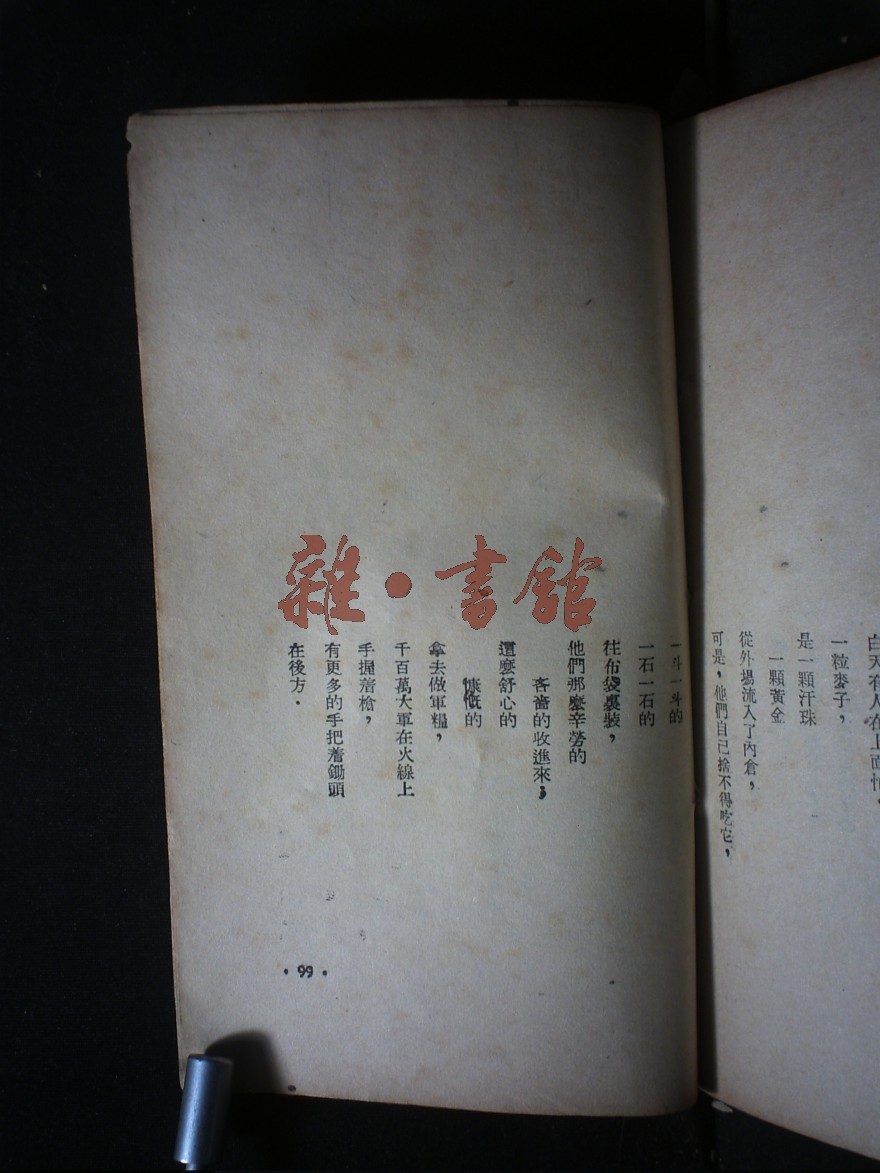 白天有人在上面
一粒麥子，
是一顆汗珠
一顆黃金
從外場流入了內倉，
可是，他們自己捨不得吃它，
一斗一斗的
一石一石的
往布袋裏裝，
他們那麼辛勞的
吝嗇的收進來；
這麼舒心的
慷慨的
拿去做軍糧，
千百萬大軍在火線上
手握着槍，
有更多的手把着鋤頭
在後方．
·99·
雜·書館